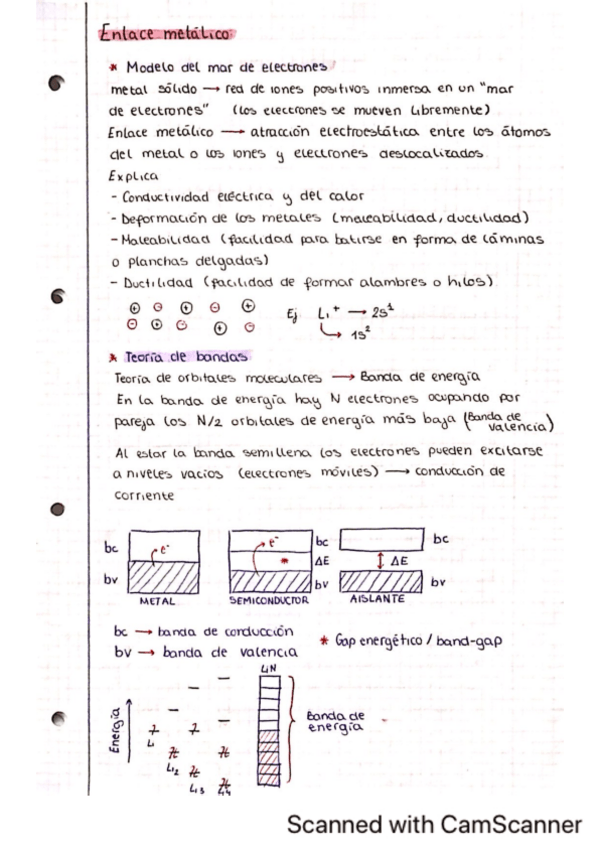 Enlace metálico
* Modelo del mar de electrones
metal sólido → red de iones positivos inmersa en un "mar
de electrones" (los electrones se mueven libremente)
Enlace metálico → atracción electroestática entre los átomos
del metal o los iones y electrones deslocalizados
Explica
- Conductividad eléctrica y del calor
- Deformación de los metales (maleabilidad, ductilidad)
- Maleabilidad (facilidad para batirse en forma de láminas
o planchas delgadas)
- Ductilidad (facilidad de formar alambres o hilos)
⊕ ⊖ ⊕ ⊖ ⊕ Ej Li⁺ → 2s¹
⊖ ⊕ ⊖ ⊕ ⊖ ↳ 1s²
* Teoría de bandas
Teoría de orbitales moleculares → Banda de energía
En la banda de energía hay N electrones ocupando por
pareja los N/2 orbitales de energía más baja (Banda de
valencia)
Al estar la banda semillena los electrones pueden excitarse
a niveles vacíos (electrones móviles) → conducción de
corriente
bc e⁻ e⁻ bc bc
* ΔE ΔE
bv bv bv
METAL SEMICONDUCTOR AISLANTE
bc → banda de conducción
* Gap energético / band-gap
bv → banda de valencia
LiN
Energía
Banda de
energía
Li
Li2
Li3 Li4
Scanned with CamScanner